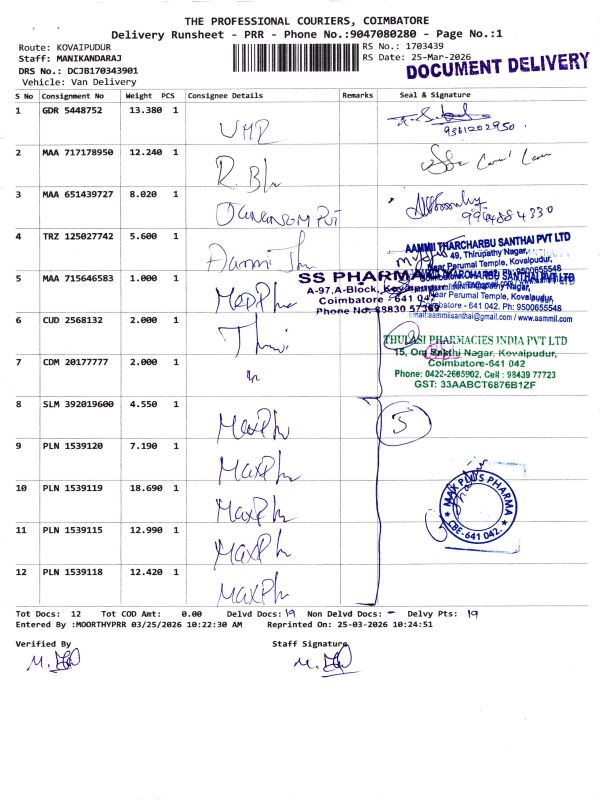 THE PROFESSIONAL COURIERS, COIMBATORE
Delivery Runsheet - PRR - Phone No.:9047080280 - Page No.:1
Route: KOVAIPUDUR
RS No.: 1703439
Staff: MANIKANDARAJ
RS Date: 25-Mar-2026
DRS No.: DCJB170343901
DOCUMENT DELIVERY
Vehicle: Van Delivery
S No Consignment No Weight PCS Consignee Details Remarks Seal & Signature
1 GDR 5448752 13.380 1
9361202950
2 MAA 717178950 12.240 1
3 MAA 651439727 8.020 1
4 TRZ 125027742 5.600 1
AAMMII THARCHARBU SANTHAI PVT LTD
49, Thirupathy Nagar,
Near Perumal Temple, Kovaipudur,
5 MAA 715646583 1.000 1 MedPha
SS PHARMACY
A-97,A-Block, Kovaipudur
Coimbatore - 641 042
Phone No: 89830 57369
Near Perumal Temple, Kovaipudur,
Coimbatore - 641 042. Ph: 9500655548
Email:aammiisanthai@gmail.com / www.aammii.com
6 CUD 2568132 2.000 1
THULASI PHARMACIES INDIA PVT LTD
15, Om Sakthi Nagar, Kovaipudur,
Coimbatore-641 042
Phone: 0422-2605902, Cell : 98439 77723
GST: 33AABCT6876B1ZF
7 CDM 20177777 2.000 1
8 SLM 392019600 4.550 1 MaxPh 5
9 PLN 1539120 7.190 1 MaxPh
10 PLN 1539119 18.690 1 MaxPh
MAX PLUS PHARMA
CBE-641 042.
11 PLN 1539115 12.990 1 MaxPh
12 PLN 1539118 12.420 1 MaxPh
Tot Docs: 12 Tot COD Amt: 0.00 Delvd Docs: 19 Non Delvd Docs: - Delvy Pts: 19
Entered By :MOORTHYPRR 03/25/2026 10:22:30 AM Reprinted On: 25-03-2026 10:24:51
Verified By Staff Signature